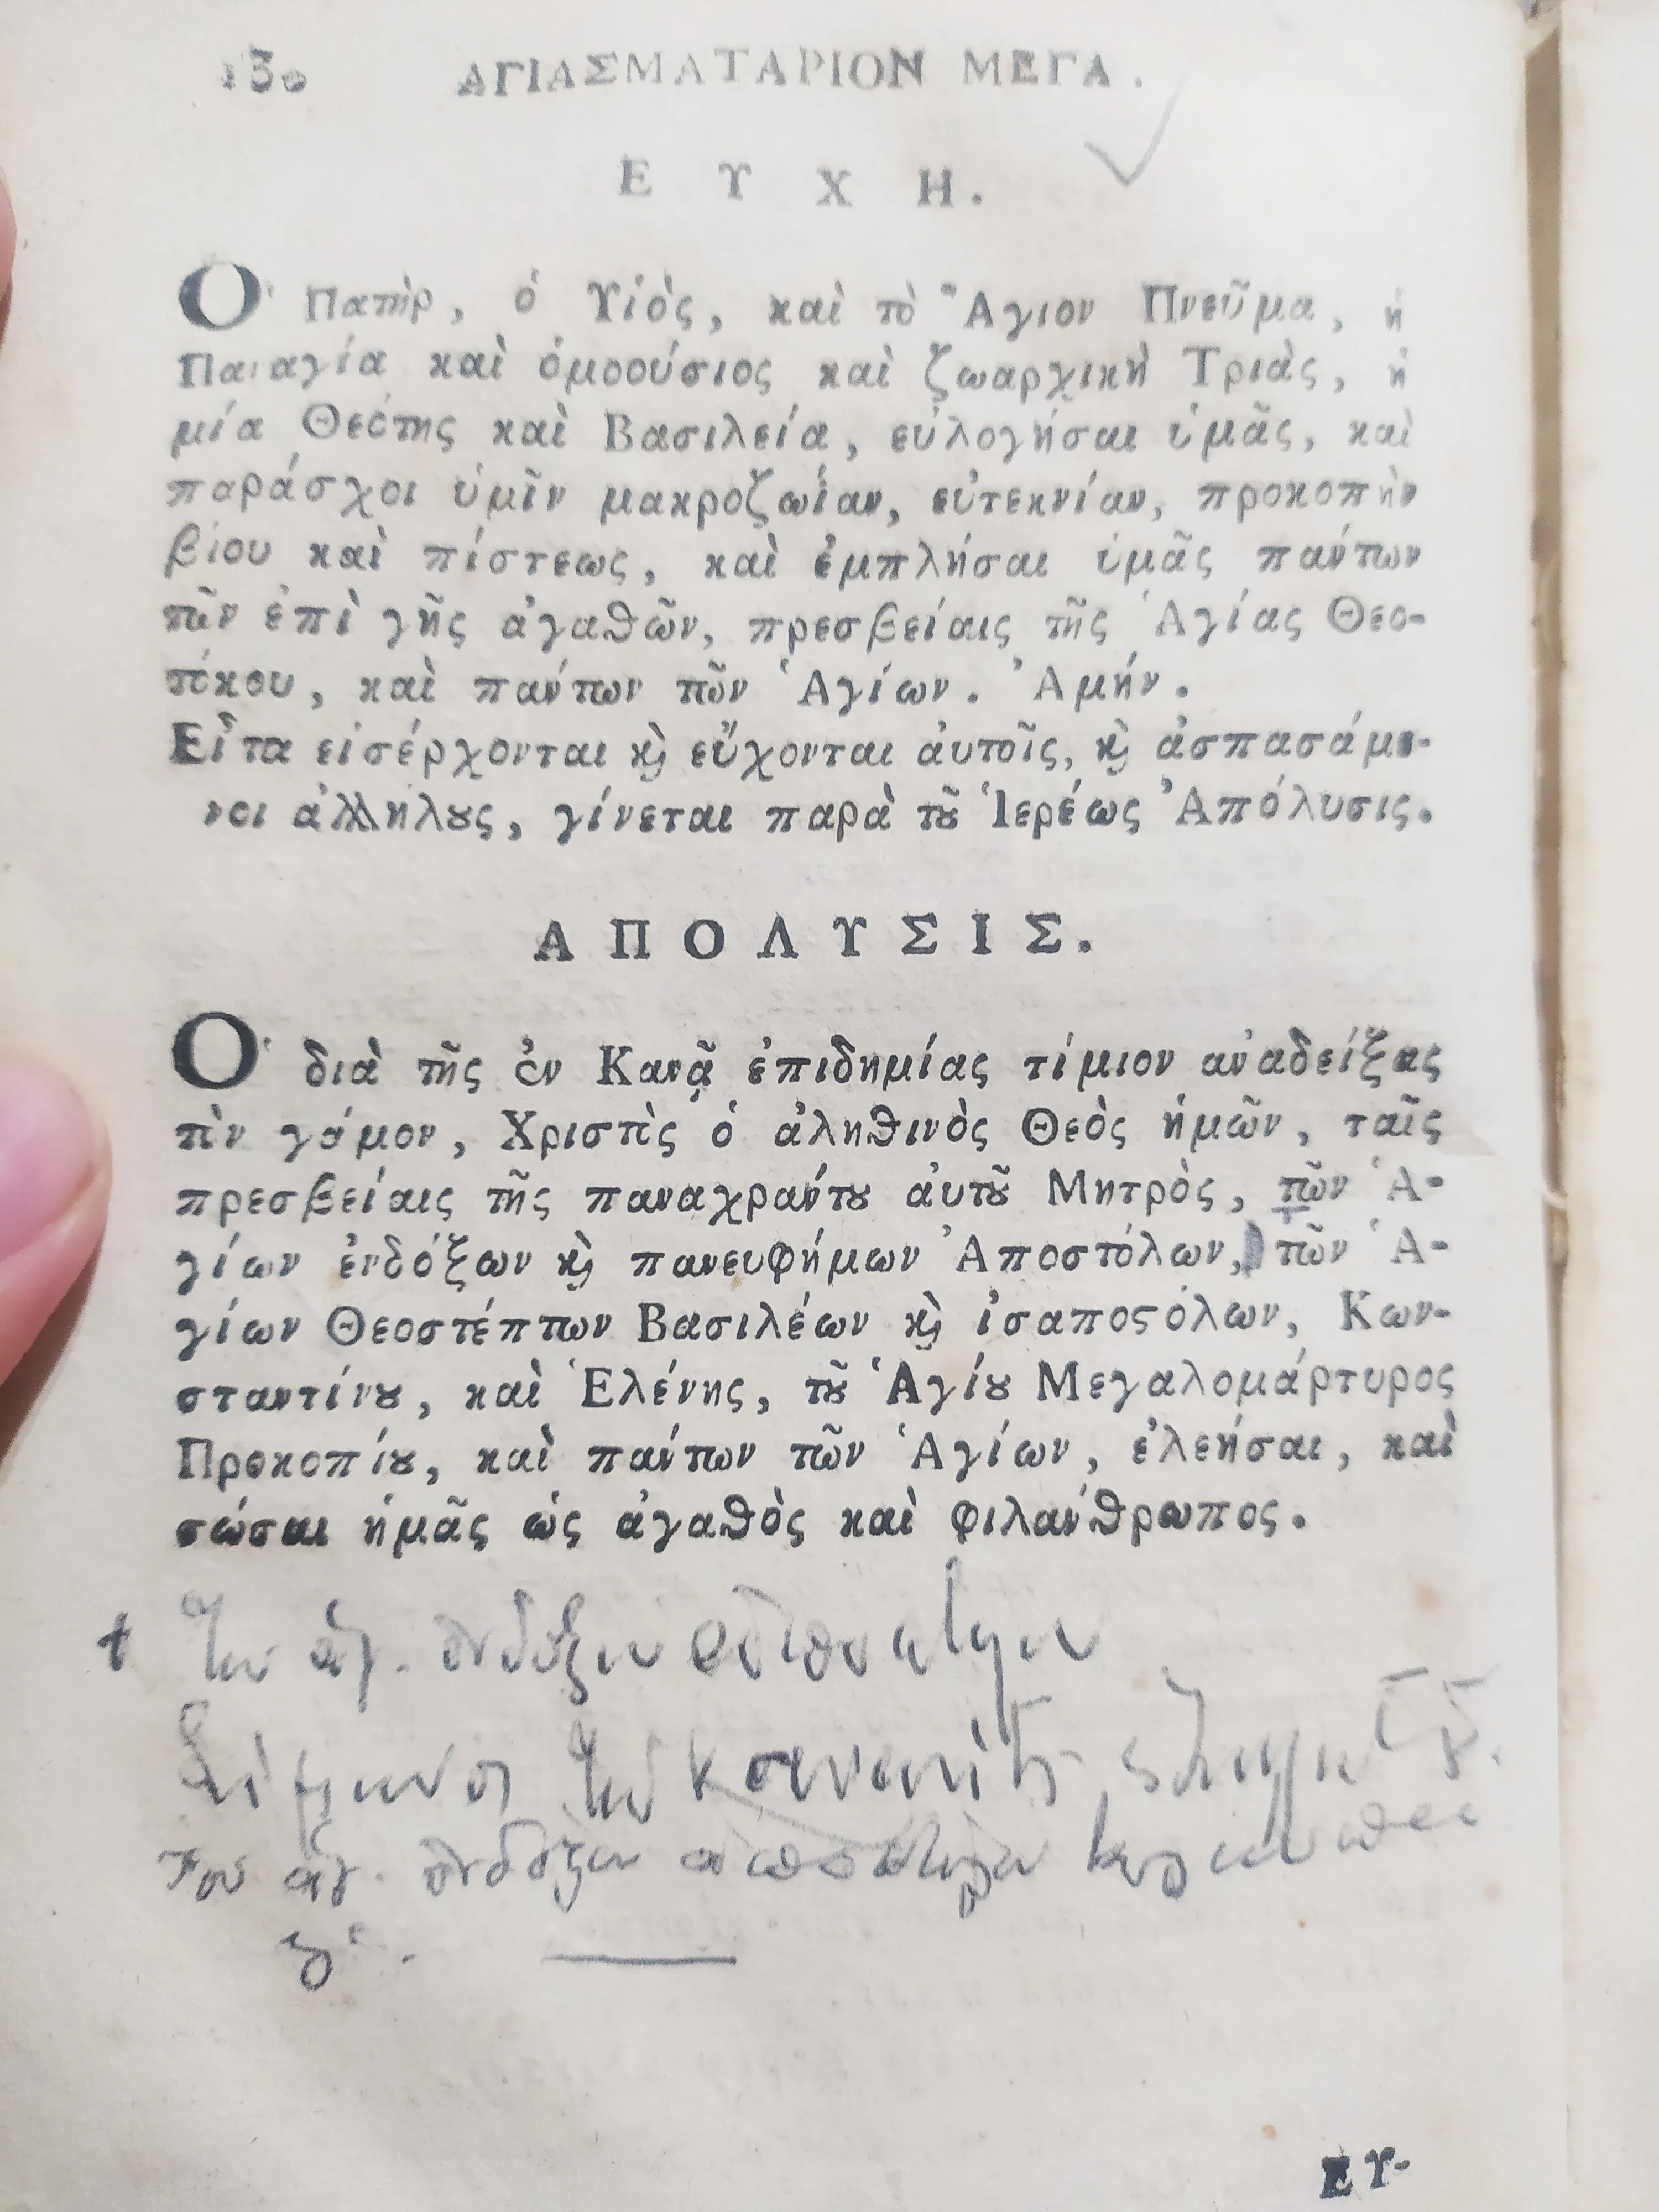 130 ΑΓΙΑΣΜΑΤΑΡΙΟΝ ΜΕΓΑ.
ΕΥΧΗ.
Ὁ Πατὴρ, ὁ Υἱὸς, καὶ τὸ Ἅγιον Πνεῦμα, ἡ
Παναγία καὶ ὁμοούσιος καὶ ζωαρχικὴ Τριὰς, ἡ
μία Θεότης καὶ Βασιλεία, εὐλογήσαι ὑμᾶς, καὶ
παράσχοι ὑμῖν μακροζωΐαν, εὐτεκνίαν, προκοπὴν
βίου καὶ πίστεως, καὶ ἐμπλήσαι ὑμᾶς πάντων
τῶν ἐπὶ γῆς ἀγαθῶν, πρεσβείαις τῆς Ἁγίας Θεο-
τόκου, καὶ πάντων τῶν Ἁγίων. Ἀμήν.
Εἶτα εἰσέρχονται ϗ̀ εὔχονται ἀυτοῖς, ϗ̀ ἀσπασάμε-
νοι ἀλλήλȣς, γίνεται παρὰ τȣ͂ Ἱερέως Ἀπόλυσις.
ΑΠΟΛΥΣΙΣ.
Ὁ διὰ τῆς ἐν Κανᾷ ἐπιδημίας τίμιον ἀναδείξας
τὸν γάμον, Χριστὸς ὁ ἀληθινὸς Θεὸς ἡμῶν, ταῖς
πρεσβείαις τῆς παναχράντȣ ἀυτȣ͂ Μητρὸς, τῶν Ἁ-
γίων ἐνδόξων ϗ̀ πανευφήμων Ἀποστόλων, τῶν Ἁ-
γίων Θεοστέπτων Βασιλέων ϗ̀ ἰσαποϛόλων, Κων-
σταντίνȣ, καὶ Ἑλένης, τȣ͂ Ἁγίȣ Μεγαλομάρτυρος
Προκοπίȣ, καὶ πάντων τῶν Ἁγίων, ἐλεήσαι, καὶ
σώσαι ἡμᾶς ὡς ἀγαθὸς καὶ φιλάνθρωπος.
ΕΥ-